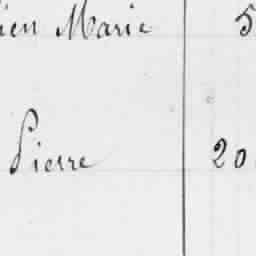 ien Marie 5
Pierre 20